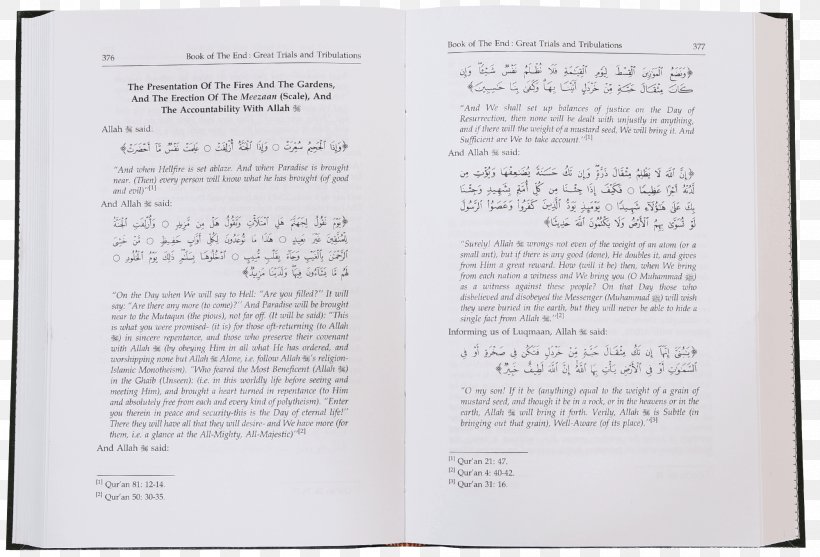 376 Book of The End: Great Trials and Tribulations
The Presentation Of The Fires And The Gardens,
And The Erection Of The Meezaan (Scale), And
The Accountability With Allah ﷻ
Allah ﷻ said:
﴿وَإِذَا الْجَحِيمُ سُعِّرَتْ ○ وَإِذَا الْجَنَّةُ أُزْلِفَتْ ○ عَلِمَتْ نَفْسٌ مَا أَحْضَرَتْ﴾
“And when Hellfire is set ablaze. And when Paradise is brought
near. (Then) every person will know what he has brought (of good
and evil)”[1]
And Allah ﷻ said:
﴿يَوْمَ نَقُولُ لِجَهَنَّمَ هَلِ امْتَلَأْتِ وَتَقُولُ هَلْ مِنْ مَزِيدٍ ○ وَأُزْلِفَتِ الْجَنَّةُ
لِلْمُتَّقِينَ غَيْرَ بَعِيدٍ ○ هَذَا مَا تُوعَدُونَ لِكُلِّ أَوَّابٍ حَفِيظٍ ○ مَنْ خَشِيَ
الرَّحْمَنَ بِالْغَيْبِ وَجَاءَ بِقَلْبٍ مُنِيبٍ ○ ادْخُلُوهَا بِسَلَامٍ ذَلِكَ يَوْمُ الْخُلُودِ ○
لَهُمْ مَا يَشَاءُونَ فِيهَا وَلَدَيْنَا مَزِيدٌ﴾
“On the Day when We will say to Hell: “Are you filled?” It will
say: “Are there any more (to come)?” And Paradise will be brought
near to the Mutaqun (the pious), not far off. (It will be said): “This
is what you were promised- (it is) for those oft-returning (to Allah
ﷻ) in sincere repentance, and those who preserve their covenant
with Allah ﷻ (by obeying Him in all what He has ordered, and
worshipping none but Allah ﷻ Alone, i.e. follow Allah ﷻ's religion-
Islamic Monotheism). “Who feared the Most Beneficent (Allah ﷻ)
in the Ghaib (Unseen): (i.e. in this worldly life before seeing and
meeting Him), and brought a heart turned in repentance (to Him
and absolutely free from each and every kind of polytheism). “Enter
you therein in peace and security-this is the Day of eternal life!”
There they will have all that they will desire- and We have more (for
them, i.e. a glance at the All-Mighty, All-Majestic)”[2]
And Allah ﷻ said:
[1] Qur'an 81: 12-14.
[2] Qur'an 50: 30-35.
Book of The End: Great Trials and Tribulations 377
﴿وَنَضَعُ الْمَوَازِينَ الْقِسْطَ لِيَوْمِ الْقِيَامَةِ فَلَا تُظْلَمُ نَفْسٌ شَيْئًا وَإِنْ
كَانَ مِثْقَالَ حَبَّةٍ مِنْ خَرْدَلٍ أَتَيْنَا بِهَا وَكَفَى بِنَا حَاسِبِينَ﴾
“And We shall set up balances of justice on the Day of
Resurrection, then none will be dealt with unjustly in anything,
and if there will the weight of a mustard seed, We will bring it. And
Sufficient are We to take account”[1]
And Allah ﷻ said:
﴿إِنَّ اللَّهَ لَا يَظْلِمُ مِثْقَالَ ذَرَّةٍ وَإِنْ تَكُ حَسَنَةً يُضَاعِفْهَا وَيُؤْتِ مِنْ
لَدُنْهُ أَجْرًا عَظِيمًا ○ فَكَيْفَ إِذَا جِئْنَا مِنْ كُلِّ أُمَّةٍ بِشَهِيدٍ وَجِئْنَا
بِكَ عَلَى هَؤُلَاءِ شَهِيدًا ○ يَوْمَئِذٍ يَوَدُّ الَّذِينَ كَفَرُوا وَعَصَوُا الرَّسُولَ
لَوْ تُسَوَّى بِهِمُ الْأَرْضُ وَلَا يَكْتُمُونَ اللَّهَ حَدِيثًا﴾
“Surely! Allah ﷻ wrongs not even of the weight of an atom (or a
small ant), but if there is any good (done), He doubles it, and gives
from Him a great reward. How (will it be) then, when We bring
from each nation a witness and We bring you (O Muhammad ﷺ)
as a witness against these people? On that Day those who
disbelieved and disobeyed the Messenger (Muhammad ﷺ) will wish
they were buried in the earth, but they will never be able to hide a
single fact from Allah ﷻ.”[2]
Informing us of Luqmaan, Allah ﷻ said:
﴿يَا بُنَيَّ إِنَّهَا إِنْ تَكُ مِثْقَالَ حَبَّةٍ مِنْ خَرْدَلٍ فَتَكُنْ فِي صَخْرَةٍ أَوْ فِي
السَّمَاوَاتِ أَوْ فِي الْأَرْضِ يَأْتِ بِهَا اللَّهُ إِنَّ اللَّهَ لَطِيفٌ خَبِيرٌ﴾
“O my son! If it be (anything) equal to the weight of a grain of
mustard seed, and though it be in a rock, or in the heavens or in the
earth, Allah ﷻ will bring it forth. Verily, Allah ﷻ is Subtle (in
bringing out that grain), Well-Aware (of its place).”[3]
[1] Qur'an 21: 47.
[2] Qur'an 4: 40-42.
[3] Qur'an 31: 16.